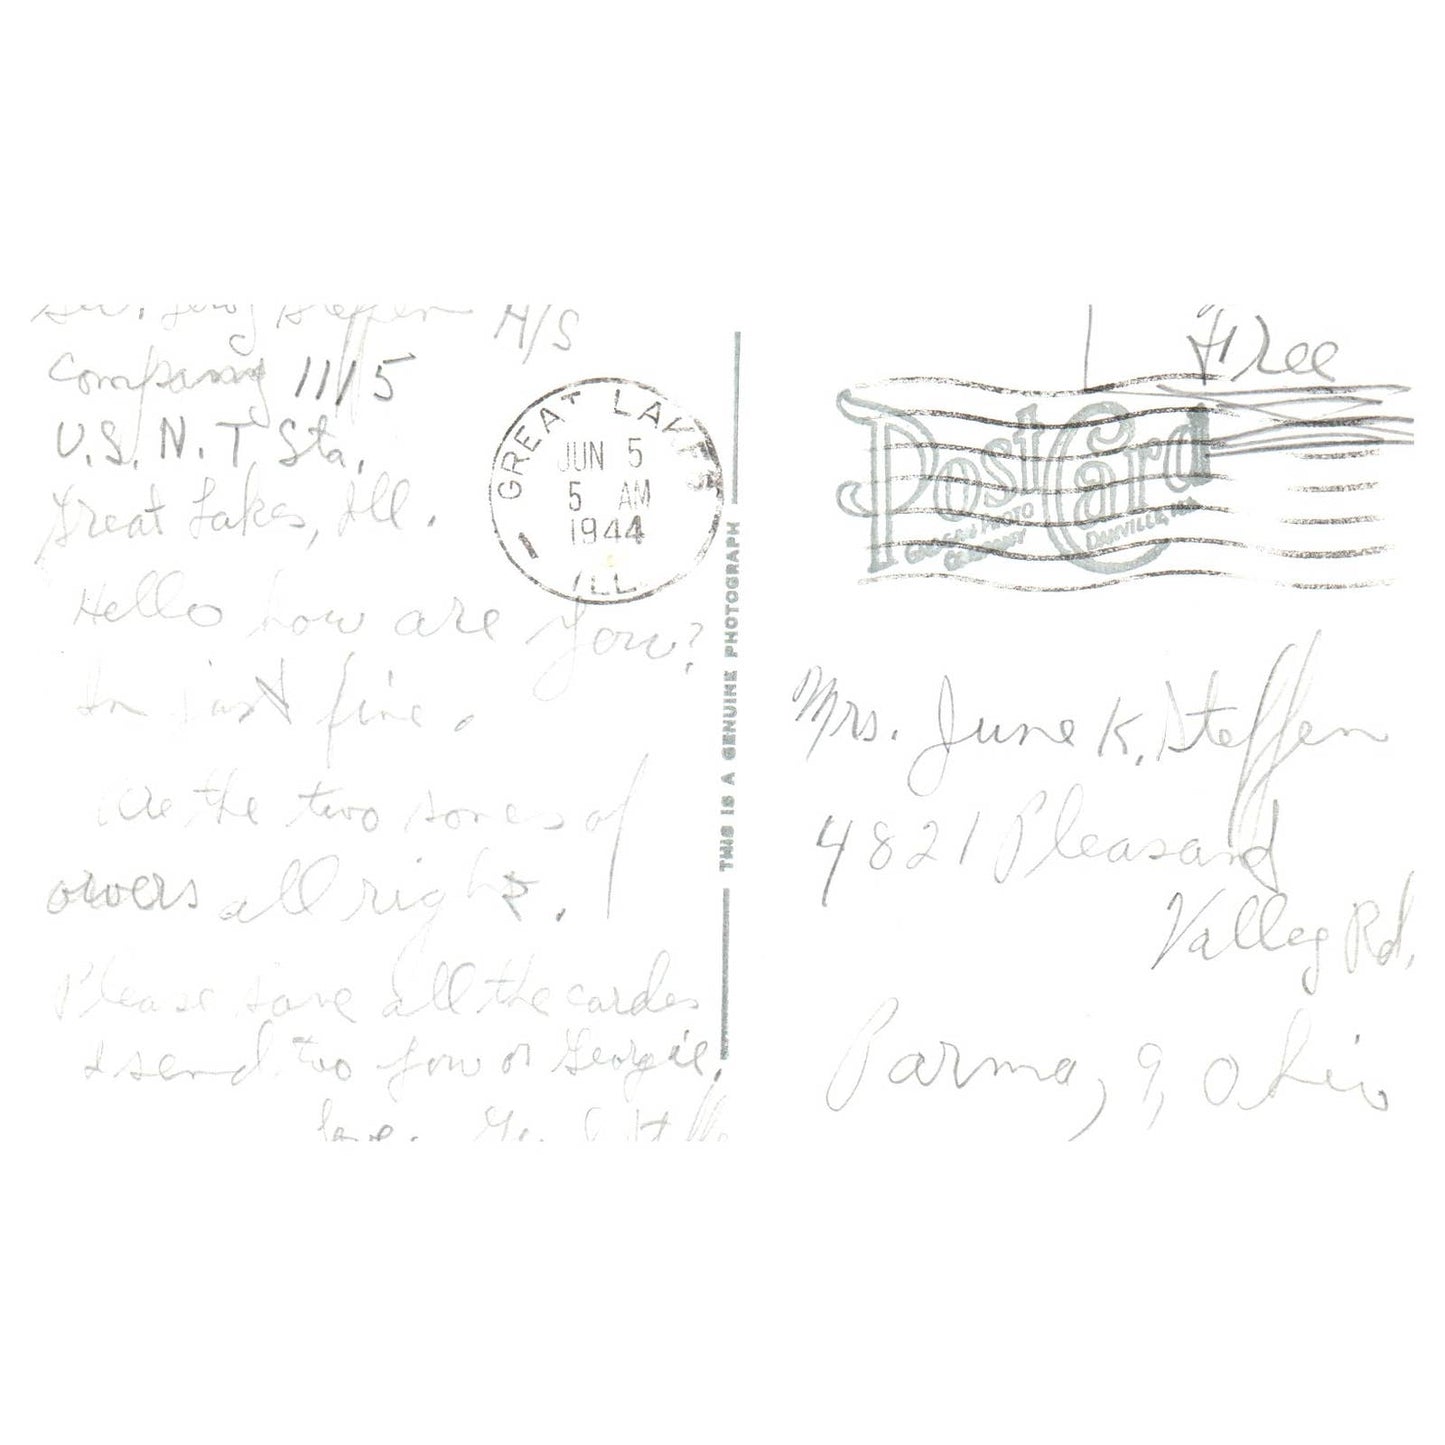 Steffen A/S
Company 1115
U.S.N.T Sta.
Great Lakes, Ill.
Hello how are you?
Im just fine.
Are the two sones of
orvers all right.
Please save all the cardes
I send too you or Georgie,
love.
GREAT LAKES
JUN 5
5 AM
1944
1
ILL.
THIS IS A GENUINE PHOTOGRAPH
Free
Post Card
PHOTO
COMPANY
DANVILLE, ILL.
Mrs. June K. Steffen
4821 Pleasand
Valley Rd.
Parma, 9, Ohio